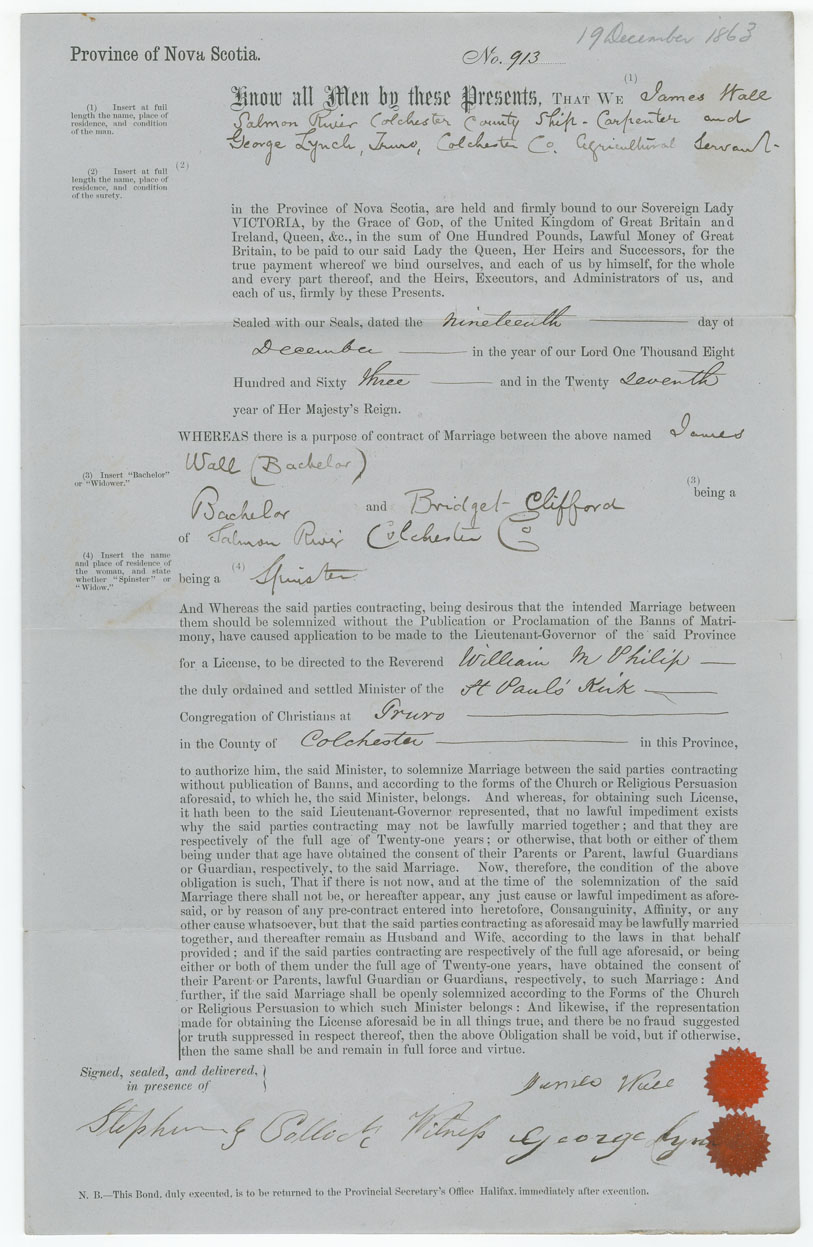 19 December 1863
Province of Nova Scotia.
No. 913
(1)
Know all Men by these Presents, THAT WE James Wall
(1) Insert at full
length the name, place of
residence, and condition
of the man.
Salmon River Colchester County Ship-Carpenter and
George Lynch, Truro, Colchester Co. Agricultural Servant-
(2)
(2) Insert at full
length the name, place of
residence, and condition
of the surety.
in the Province of Nova Scotia, are held and firmly bound to our Sovereign Lady
VICTORIA, by the Grace of GOD, of the United Kingdom of Great Britain and
Ireland, Queen, &c., in the sum of One Hundred Pounds, Lawful Money of Great
Britain, to be paid to our said Lady the Queen, Her Heirs and Successors, for the
true payment whereof we bind ourselves, and each of us by himself, for the whole
and every part thereof, and the Heirs, Executors, and Administrators of us, and
each of us, firmly by these Presents.
Sealed with our Seals, dated the nineteenth day of
December in the year of our Lord One Thousand Eight
Hundred and Sixty three and in the Twenty seventh
year of Her Majesty's Reign.
WHEREAS there is a purpose of contract of Marriage between the above named James
Wall (Bachelor)
(3) Insert "Bachelor"
or "Widower."
(3)
being a
Bachelor and Bridget Clifford
of Salmon River Colchester Co
(4) Insert the name
and place of residence of
the woman, and state
whether "Spinster" or
"Widow."
being a (4) Spinster
And Whereas the said parties contracting, being desirous that the intended Marriage between
them should be solemnized without the Publication or Proclamation of the Banns of Matri-
mony, have caused application to be made to the Lieutenant-Governor of the said Province
for a License, to be directed to the Reverend William M Philip
the duly ordained and settled Minister of the St Paul's Kirk
Congregation of Christians at Truro
in the County of Colchester in this Province,
to authorize him, the said Minister, to solemnize Marriage between the said parties contracting
without publication of Banns, and according to the forms of the Church or Religious Persuasion
aforesaid, to which he, the said Minister, belongs. And whereas, for obtaining such License,
it hath been to the said Lieutenant-Governor represented, that no lawful impediment exists
why the said parties contracting may not be lawfully married together; and that they are
respectively of the full age of Twenty-one years; or otherwise, that both or either of them
being under that age have obtained the consent of their Parents or Parent, lawful Guardians
or Guardian, respectively, to the said Marriage. Now, therefore, the condition of the above
obligation is such, That if there is not now, and at the time of the solemnization of the said
Marriage there shall not be, or hereafter appear, any just cause or lawful impediment as afore-
said, or by reason of any pre-contract entered into heretofore, Consanguinity, Affinity, or any
other cause whatsoever, but that the said parties contracting as aforesaid may be lawfully married
together, and thereafter remain as Husband and Wife, according to the laws in that behalf
provided; and if the said parties contracting are respectively of the full age aforesaid, or being
either or both of them under the full age of Twenty-one years, have obtained the consent of
their Parent or Parents, lawful Guardian or Guardians, respectively, to such Marriage: And
further, if the said Marriage shall be openly solemnized according to the Forms of the Church
or Religious Persuasion to which such Minister belongs: And likewise, if the representation
made for obtaining the License aforesaid be in all things true, and there be no fraud suggested
or truth suppressed in respect thereof, then the above Obligation shall be void, but if otherwise,
then the same shall be and remain in full force and virtue.
Signed, sealed, and delivered,
in presence of
James Wall
Stephen G Pollock Witness George Lynch
N. B.—This Bond, duly executed, is to be returned to the Provincial Secretary's Office Halifax, immediately after execution.